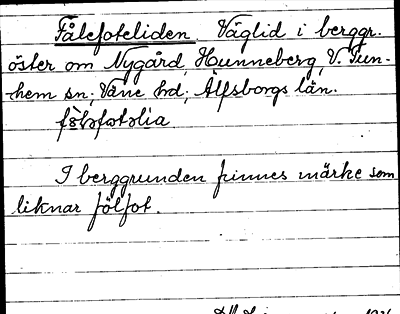 Fålefoteliden. Väglid i berggr.
öster om Nygård, Hunneberg, V. Tun-
hem sn; Väne hd; Älfsborgs län.
I berggrunden finnes märke som
liknar fölfot.